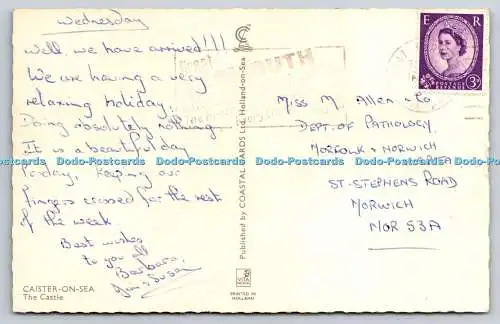 Wednesday
Well, we have arrived!!!
We are having a very
relaxing holiday.
Doing absolutely nothing
It is a beautiful day
today, keeping our
fingers crossed for the rest
of the week
Best wishes
to you all
Barbara,
& Susan
CAISTER-ON-SEA
The Castle
Published by COASTAL CARDS Ltd., Holland-on-Sea
PRINTED IN
HOLLAND
E R
POSTAGE REVENUE
3D
MOUTH
Miss M. Allen & Co
DEPT. OF PATHOLOGY
NORFOLK & NORWICH
ST-STEPHENS ROAD
NORWICH
NOR 53A
Dodo-Postcards Dodo-Postcards Dodo-Postcards Dodo-Postcards Dodo-Postcards